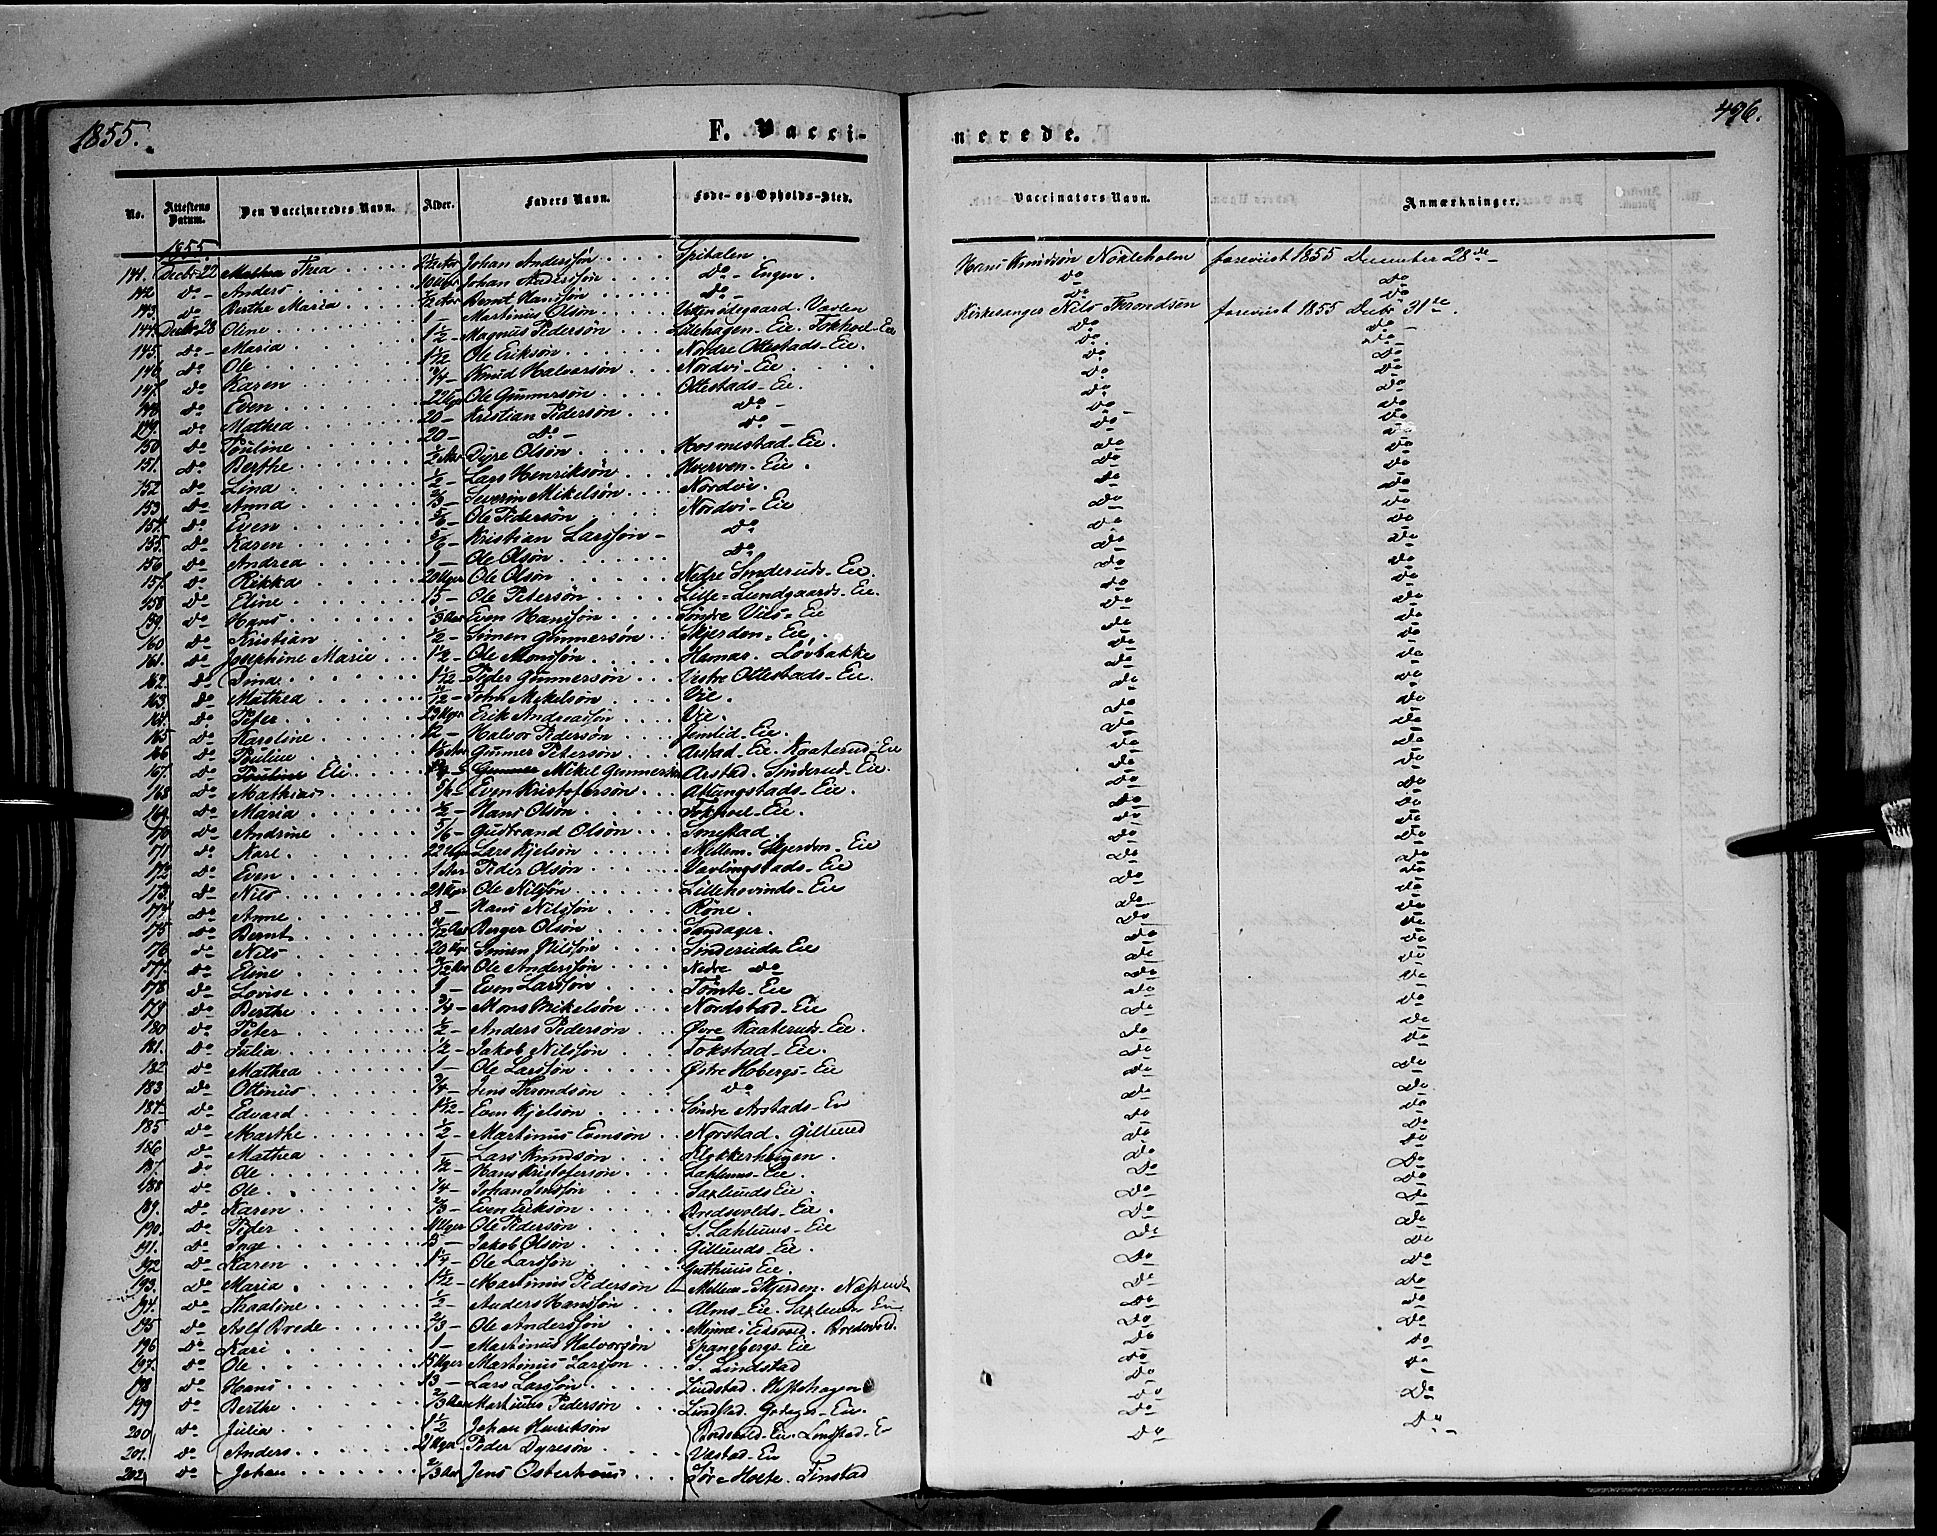 1855.
F. Vacci-
nerede.
496.
No. Attestens Datum. Den Vaccineredes Navn. Alder. Faders Navn. Føde- og Opholds-Sted.
Vaccinators Navn. Anmærkninger.
1855.
141. Decbr 22 Thea Johan Andersøn Spitalen. Hans Knudsøn Nökleholm foreviist 1855 December 28de
142 do Anders Johan Andersøn do - Engen. do do
143. do Berthe Maria Bernt Hansøn do do do
144. Decbr 28 Oline 1 Martinus Olsøn Kirkesanger Nils Throndsen foreviist 1855 Decbr 31te.
145. do Maria 1 1/2 Magnus Pedersøn Lillehagen-Eie. Tokhoel-Eie do do
146 do Ole 1 1/2 Ole Eriksøn Nordre Ottestads-Eie. do do
147. do Karen 3/4 Knud Halvorsøn Nordvi-Eie do do
148 do Even 22 Uger Ole Gunnersøn Ottestads-Eie. do do
149. do Mathea 20 Kristian Pedersøn do do do
150 do Pouline 20 do do do do
151. do Berthe 1/2 Aar Dyre Olsøn Kosmestad-Eie do do
152 do Lina 1/2 Lars Henriksøn Kverven-Eie. do do
153 do Anna 2/3 Severin Mikelsøn Nordvi. do do
154. do Even 5/6 Ole Pedersøn Nordvi-Eie do do
155. do Karen 5/6 Kristian Larssøn do do do
156 do Andrea 1 Ole Olsøn do do do
157. do Rikka 20 Uger Ole Olsøn Nedre Sinderuds-Eie. do do
158 do Eline 15 Ole Petersøn Lille-Lundgaards-Eie. do do
159. do Hans 1/3 Aar Even Hanssøn Søndre Viis-Eie do do
160 do Kristian 1/2 Simen Gunnersøn Skjerden-Eie. do do
161. do Josephine Marie 1 1/2 Ole Monssøn Hamar. Løvbakke do do
162. do Dina 1 1/2 Peder Gunnersøn Vestre Ottestads-Eie. do do
163. do Mathea John Mikelsøn Vie. do do
164. do Peter 23 Uger Erik Andreassøn Vie. do do
165 do Karoline 1/2 Halvor Pedersøn Jemlid-Eie. do do
166 do Pouline Gunner Petersøn Arstad-Eie. Kaaterud-Eie do do
167. do Pouline Eli Gunner Mikel Gunnersøn Arstad. Sinderud-Eie. do do
168 do Mathias Even Kristofersøn Atlungstads-Eie. do do
169. do Maria 1/2 Hans Olsøn Tokhoel-Eie. do do
170 do Andrine 5/6 Gudbrand Olsøn Smestad. do do
171 do Karl 22 Uger Lars Kjelsøn Mellem-Skjerden-Eie do do
172 do Even 1 Aar Peder Olsøn Vavlingstads-Eie do do
173. do Nils 21 Uger Ole Nilssøn Lillehovinds-Eie do do
174 do Anne 8 Hans Nilssøn Røne. do do
175 do Bernt Berger Olsøn Sandager. do do
176 do Nils 20 Uger Simen Nilssøn Sinderuds-Eie do do
177. do Eline Ole Anderssøn Nedre do do do
178 do Lovise 1 Even Larssøn Tomte-Eie do do
179 do Berthe 3/4 Mons Mikelsøn Nordstad-Eie do do
180 do Peter 1/2 Anders Pedersøn Øvre Kaateruds-Eie. do do
181. do Julia 1/2 Jakob Nilssøn Tokstad-Eie. do do
182 do Mathea 1 Ole Larssøn Østre Hobergs-Eie do do
183 do Ottinius 3/4 Jens Throndsøn do do do
184 do Edvard 1 1/2 Even Kjelsøn Søndre Arstads-Eie do do
185 do Marthe 1/2 Martinus Evensøn Norstad. Gillund do do
186 do Mathea 1 Lars Knudsøn Klokkerhaugen. do do
187. do Ole 1/2 Hans Kristofersøn Saxlunds-Eie. do do
188 do Ole 1/4 Johan Jenssøn Saxlunds Eie. do do
189. do Karen 2/3 Even Eriksøn Bredsvolds-Eie. do do
190. do Peder Ole Pedersøn S. Saxlunds-Eie do do
191. do Inge Jakob Olsøn Gillunds-Eie. do do
192 do Karen Ole Larssøn Guthuus Eie. do do
193. do Maria 1 1/2 Martinus Pedersøn Mellem-Skjerden. do do
194. do Thaaline 1/2 Anders Hanssøn Alms-Eie. Saxlunds Eie do do
195 do Adolf Brede 2/3 Ole Anderssøn Eidsvold. Bredsvold. do do
196 do Kari 1 Martinus Halvorsøn Spangbergs-Eie do do
197. do Ole 15 Uger Martinus Larssøn S. Lindstad do do
198 do Hans 13 Lars Larssøn Lindstad. do do
199 do Berthe 2/3 Aar Martinus Pedersøn Lindstad. Godager-Eie. do do
200 do Julia 1 1/2 Johan Henriksøn Bredsvold-Eie. Lindstad-E do
201. do Anders 21 Uger Peder Dyresøn Vaestad-Eie
202 do Johan 2/3 Aar Jens Osterhous Søre Hoete. Finstad